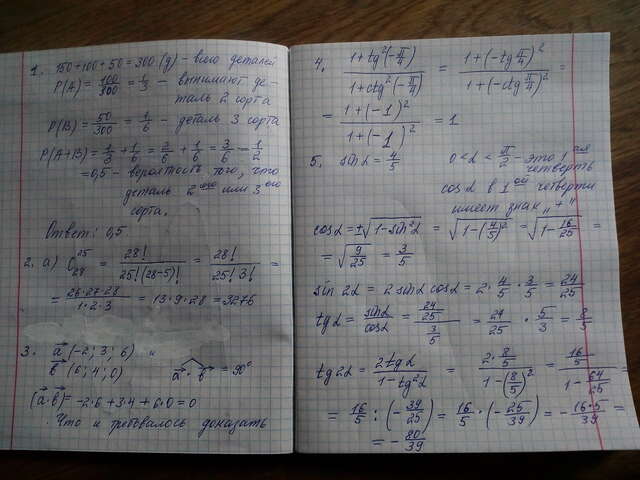 1. 150+100+50=300 (д) - всего деталей
P(A) = 100/300 = 1/3 - вынимают де-
таль 2 сорта
P(B) = 50/300 = 1/6 - деталь 3 сорта
P(A+B) = 1/3 + 1/6 = 2/6 + 1/6 = 3/6 = 1/2
=0,5 - вероятность того, что
деталь 2ого или 3его
сорта.
Ответ: 0,5
2. а) C 25 28 = 28!/25!(28-5)! = 28!/25! 3! =
= 26·27·28/1·2·3 = 13·9·28 = 3276
3. a (-2; 3; 6) и
b (6; 4; 0) a·b = 90°
(a·b) = -2·6+3·4+6·0=0
Что и требовалось доказать
4. 1+tg²(-π/4)/1+ctg²(-π/4) = 1+(-tg π/4)²/1+(-ctg π/4)² =
= 1+(-1)²/1+(-1)² = 1
5. sinα = 4/5 0<α<π/2 - это 1ая
четверть
cosα в 1ой четверти
имеет знак „+"
cosα = ±√1-sin²α = √1-(4/5)² = √1-16/25 =
= √9/25 = 3/5
sin 2α = 2 sinα cosα = 2·4/5·3/5 = 24/25
tgα = sinα/cosα = 24/25/3/5 = 24/25 · 5/3 = 8/5
tg2α = 2tgα/1-tg²α = 2·8/5/1-(8/5)² = 16/5/1-64/25
= 16/5 : (-39/25) = 16/5 · (-25/39) = -16·5/39 =
= -80/39